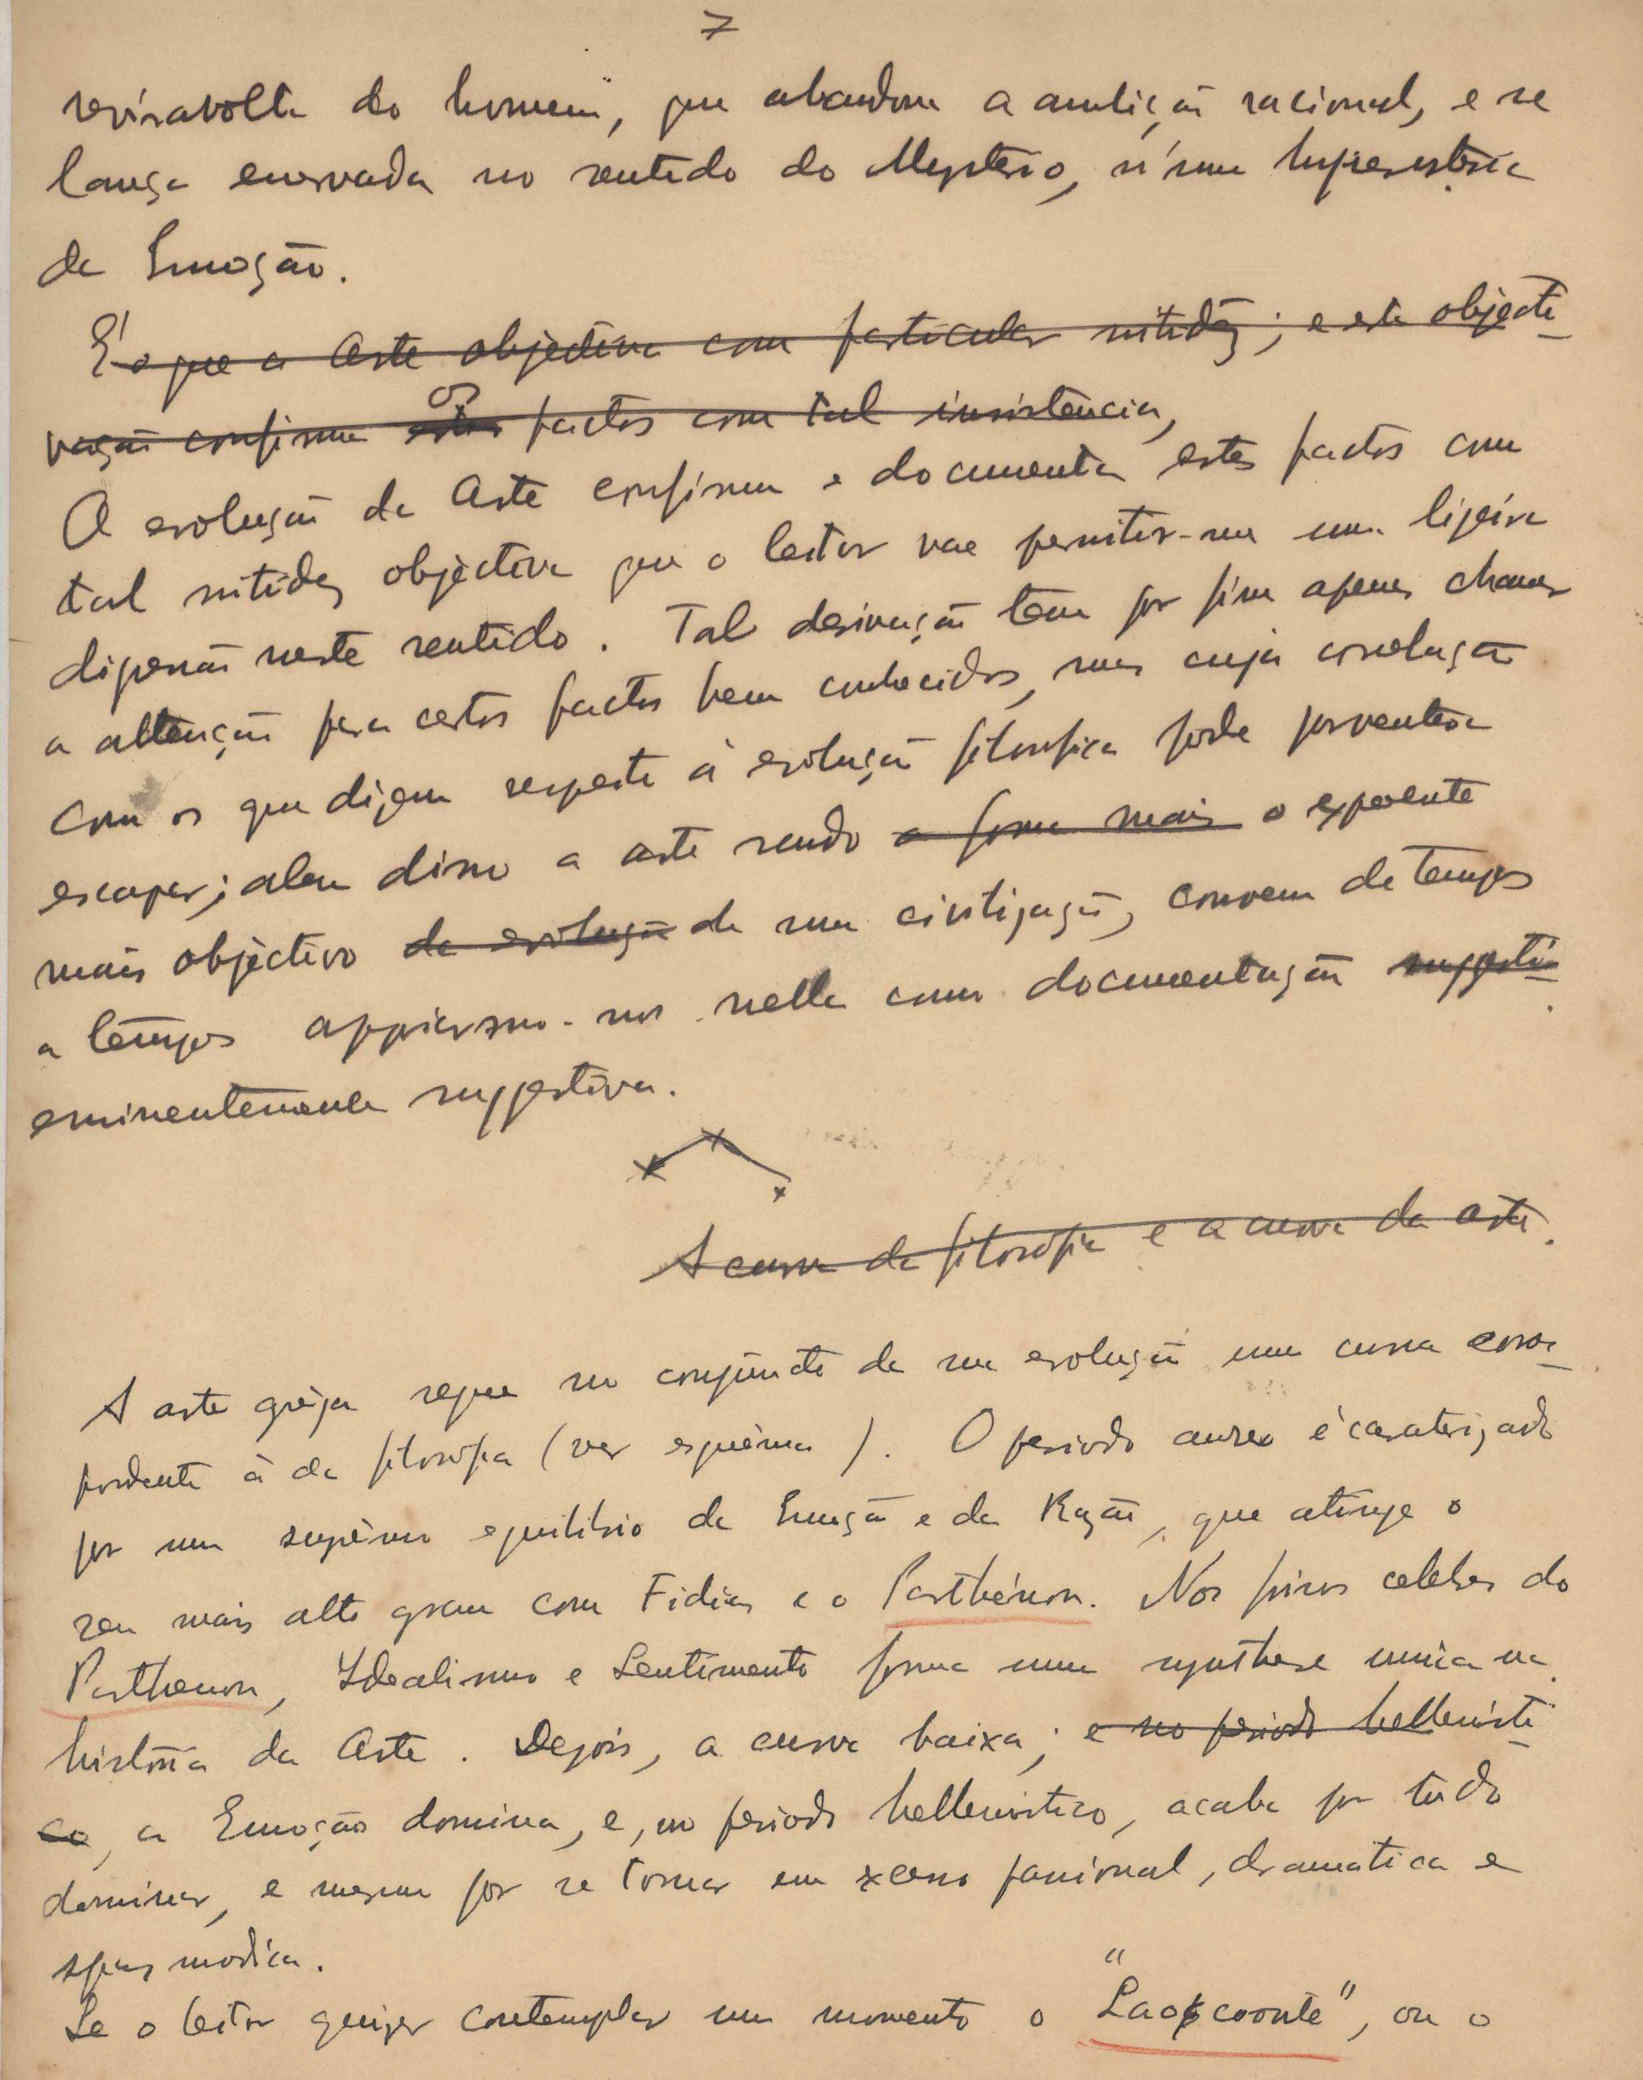 7
reviravolta do homem, que abandona a ambição racional, e se
lança enervada no sentido do Mysterio, n'uma hyperestesia
da Emoção.
É o que a Arte objectiva com particular nitidez; e esta objecti-
vação confirma estes os factos com tal insistencia,
A evolução da Arte confirma e documenta estes factos com
tal nitidez objectiva que o leitor vae permitir-me uma ligeira
digressão neste sentido. Tal derivação tem por fim apenas chamar
a attenção para certos factos bem conhecidos, mas cuja correlação
com os que dizem respeito á evolução filosofica pode porventura
escapar; alem disso a arte sendo a forma mais o expoente
mais objectivo da evolução de uma civilização, convem de tempos
a tempos appoiarmo-nos nella como documentação suggesti-
eminentemente suggestiva.
A curva da filosofia e a curva da arte.
A arte grega segue no conjuncto da sua evolução uma curva corres-
pondente á da filosofia (ver esquema). O periodo aureo é caraterizado
por um supremo equilibrio da Emoção e da Razão, que atinge o
seu mais alto grau com Fidias e o Parthénon. Nos frisos celebres do
Parthenon, Idealismo e Sentimento forma uma synthese unica na
historia da Arte. Depois, a curva baixa; e no periodo hellenisti-
co, a Emoção domina, e, no periodo hellenistico, acaba por tudo
dominar, e mesmo por se tornar em excesso passional, dramatica e
spasmodica.
Se o leitor quizer contemplar um momento o "Laocoonte", ou o